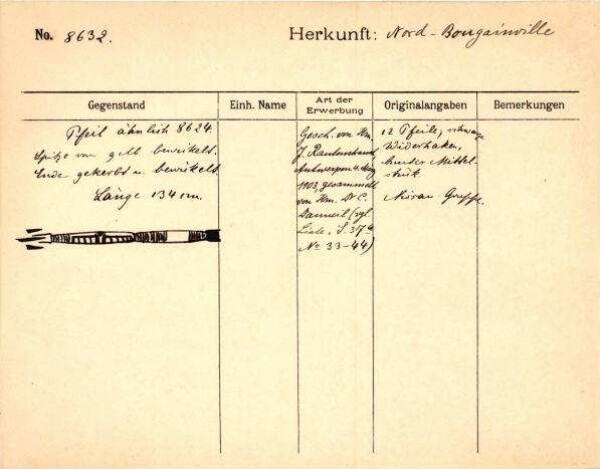 No. 8632.
Herkunft: Nord-Bougainville
Gegenstand
Einh. Name
Art der
Erwerbung
Originalangaben
Bemerkungen
Pfeil ähnlich 8624.
Spitze von gelb bewickelt.
Ende gekerbt u. bewickelt.
Länge 134 cm.
Gesch. von Hrn.
J. Rautenstrauch,
Antwerpen
1903, gesammelt
von Hrn. Dr C.
(vgl.
Liste. S. 37a
No 33-44)
12 Pfeile, schwarze
Widerhaken,
bunter Mittel-
stück